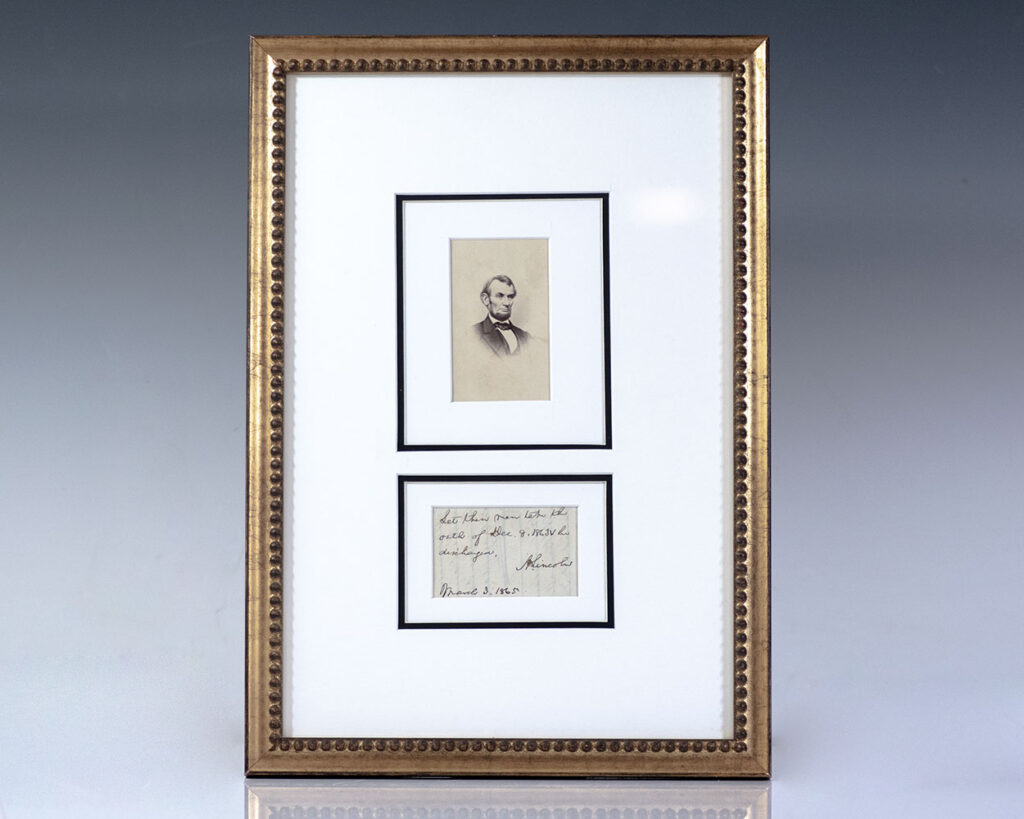 Let this man take the
oath of Dec. 8. 1863 & be
discharged.
A. Lincoln
March 3. 1865